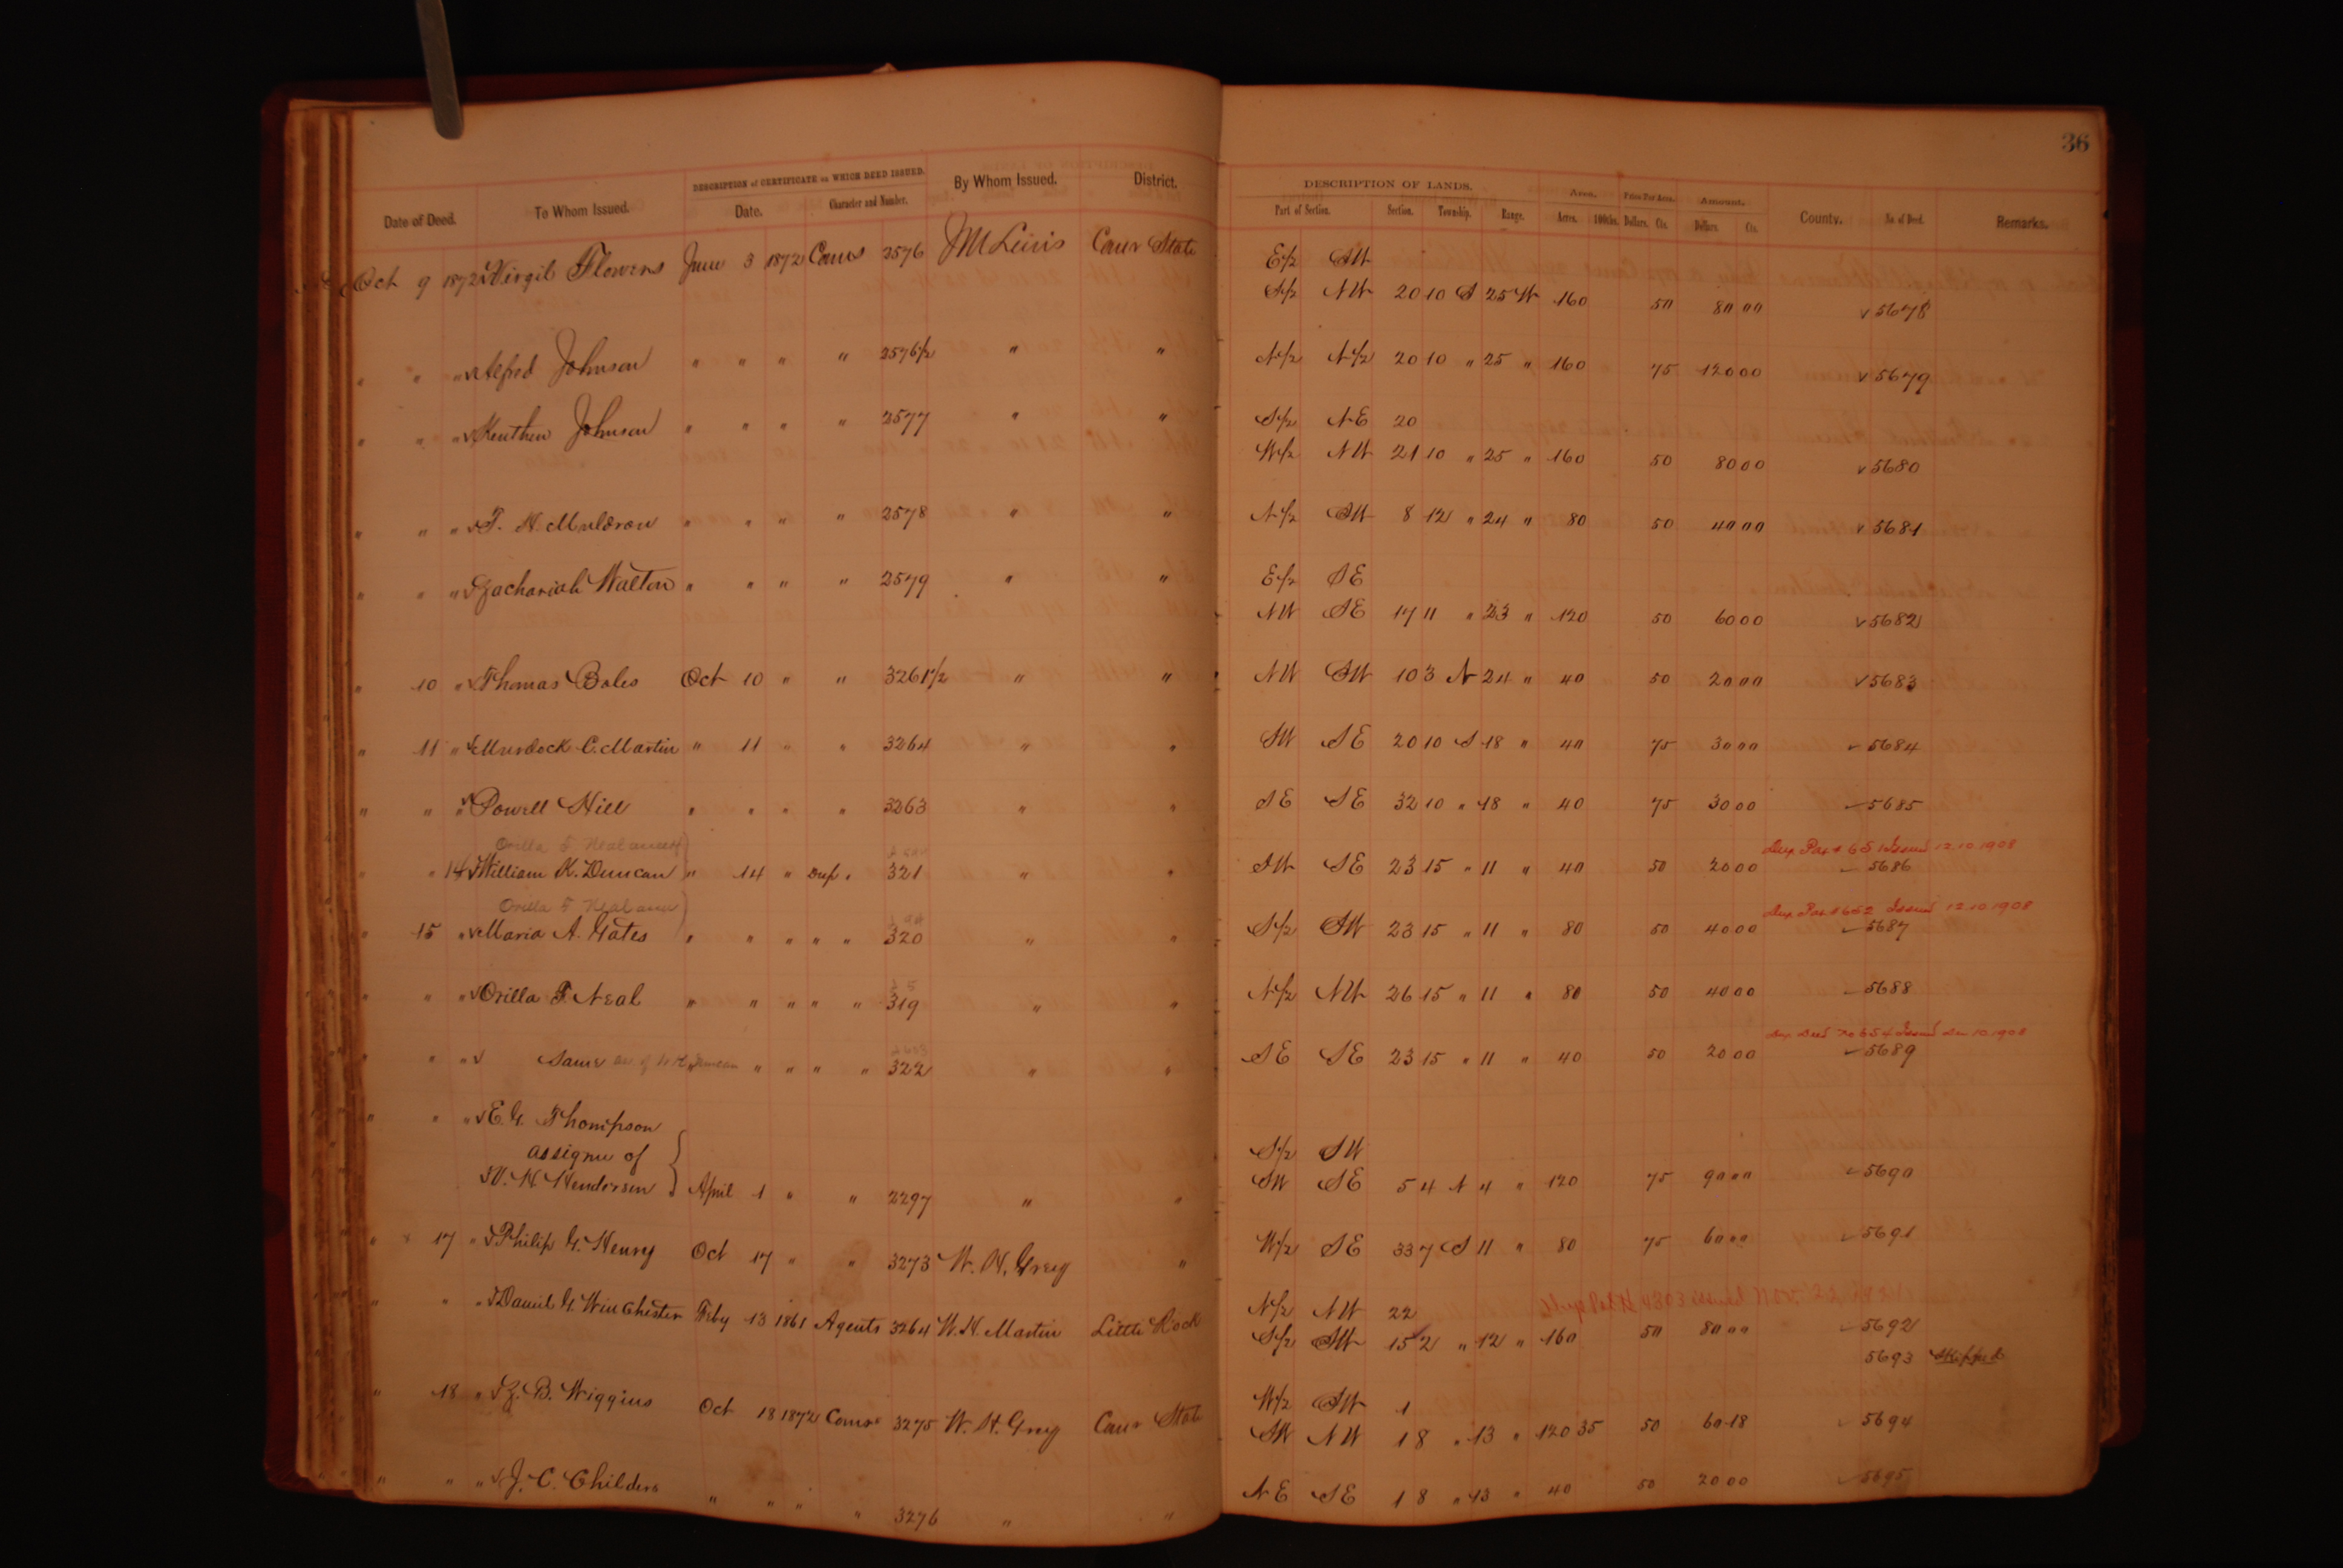 36
DESCRIPTION of CERTIFICATE on WHICH DEED ISSUED.
Date of Deed. To Whom Issued. Date. Character and Number. By Whom Issued. District.
DESCRIPTION OF LANDS. Area. Price Per Acre. Amount.
Part of Section. Section. Township. Range. Acres. 100ths. Dollars. Cts. Dollars. Cts. County. No. of Deed. Remarks.
Oct 9 1872 Virgil Flowers June 3 1872 Coms 2576 J M Lewis Comr State E/2 SW
S/2 NW 20 10 S 25 W 160 50 80 00 5678
" " " Alfred Johnson " " " " 2576 1/2 " " N/2 N/2 20 10 " 25 " 160 75 120 00 5679
" " " Johnson " " " " 2577 " " S/2 NE 20
W/2 NW 21 10 " 25 " 160 50 80 00 5680
" " " T. H. Muldrow " " " " 2578 " " N/2 SW 8 12 " 24 " 80 50 40 00 5681
" " " Zachariah Walton " " " " 2579 " " E/2 SE
NW SE 17 11 " 23 " 120 50 60 00 5682
" 10 " Thomas Boles Oct 10 " " 3261 1/2 " " NW SW 10 3 N 24 " 40 50 20 00 5683
" 11 " Murdock C. Martin " 11 " " 3264 " " SW SE 20 10 S 18 " 40 75 30 00 5684
" " " Powell Hill " " " " 3263 " " SE SE 32 10 " 18 " 40 75 30 00 5685
Orilla F Neal Issued 12.10.1908
" " 14 William K. Duncan " 14 " Dup " 321 " " SW SE 23 15 " 11 " 40 50 20 00 5686
Orilla F Neal 652 Issued 12.10.1908
" 15 " Maria A. Gates " " " " " 320 " " S/2 SW 23 15 " 11 " 80 50 40 00 5687
" " " Orilla F. Neal " " " " " 319 " " N/2 NW 26 15 " 11 " 80 50 40 00 5688
Deed No 654 Issued 10 1908
" " " Same " " " " 322 " " SE SE 23 15 " 11 " 40 50 20 00 5689
" " " E. G. Thompson
assignee of S/2 SW
W. H. Henderson April 1 " " 2297 " " SW SE 5 4 N 4 " 120 75 90 00 5690
" 17 " Philip G. Henry Oct 17 " " 3273 W. H. Grey " W/2 SE 33 7 S 11 " 80 75 60 00 5691
" " " Daniel G. Winchester Feby 13 1861 Agents 3264 W. H. Martin Little Rock N/2 NW 22
S/2 SW 15 2 " 12 " 160 50 80 00 5692
5693 Skipped
" 18 " Z. B. Wiggins Oct 18 1872 Coms 3275 W. H. Grey Comr State W/2 SW 1
SW NW 1 8 " 13 " 120 35 50 60 18 5694
" " " J. C. Childers " " " " 3276 " " NE SE 1 8 " 13 " 40 50 20 00 5695